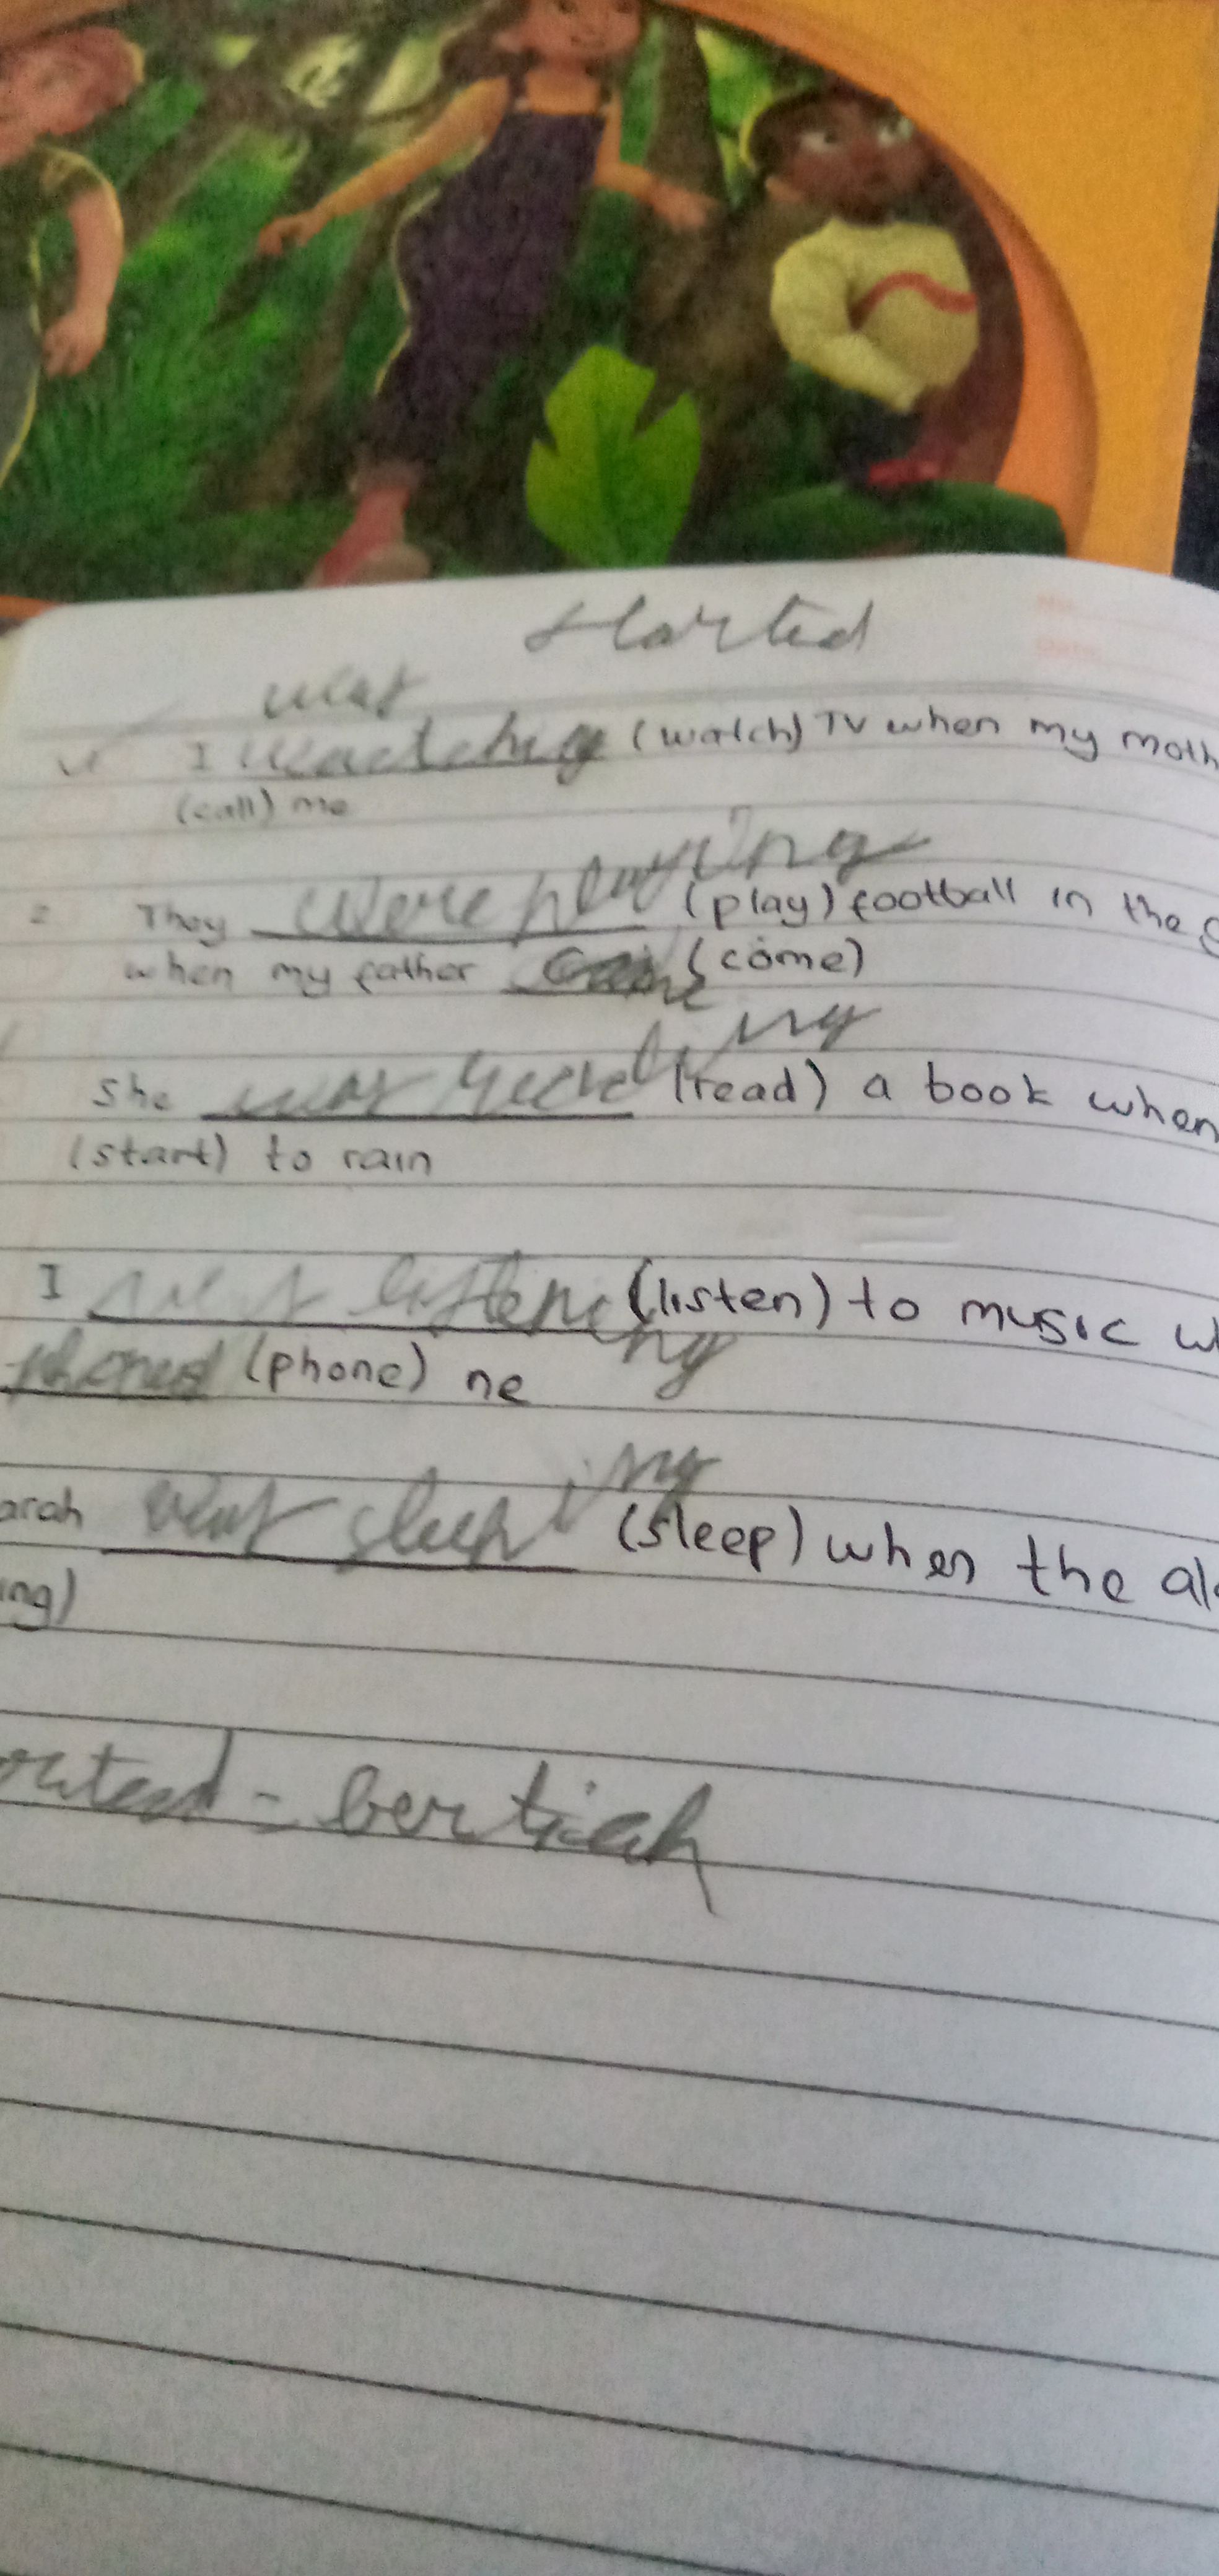 started
was
I watching (watch) TV when my moth
(call) me
2 They were playing (play) football in the g
when my father came (come)
She was reading (read) a book when
(start) to rain
I was listening (listen) to music wh
phoned (phone) ne
arah was sleeping (sleep) when the ala
ing)